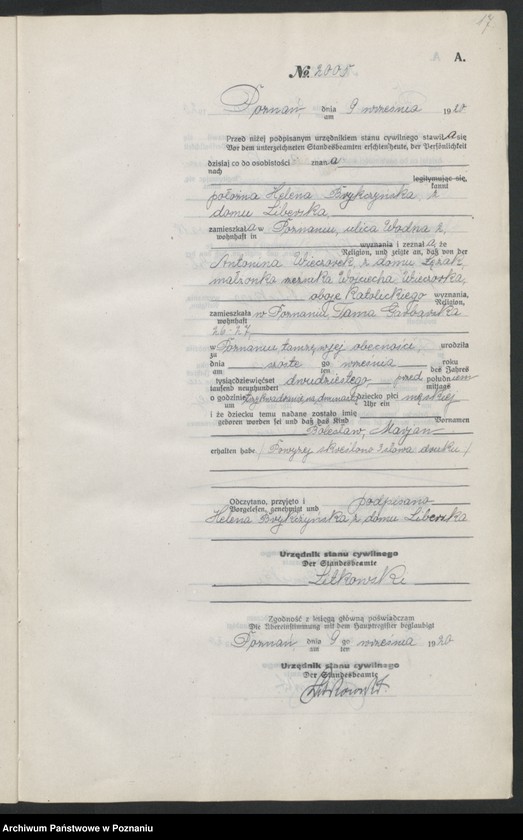 17
A.
No. 2005
Poznań, dnia 9 września 1920
am
Przed niżej podpisanym urzędnikiem stanu cywilnego stawiła się
Vor dem unterzeichneten Standesbeamten erschien heute, der Persönlichkeit
dzisiaj co do osobistości znana
nach
legitymując się,
kannt
położna Helena Brykczyńska z
domu Liberska,
zamieszkała w Poznaniu, ulica Wodna 2,
wohnhaft in
wyznania i zeznała, że
Religion, und zeigte an, daß von der
Antonina Wieczorek z domu
małżonka Wojciecha Wieczorka,
oboje katolickiego wyznania,
Religion,
zamieszkała w Poznaniu, Tama Garbarska
wohnhaft
26-27,
w Poznaniu tamże, w jej obecności urodziła
zu
dnia go września roku
am ten des Jahres
tysiącdziewięćset dwudziestego przed południem
tausend neunhundert mittags
o godzinie dziecko płci męskiej
um Uhr ein
i że dziecku temu nadane zostało imię
geboren worden sei und daß das Kind Vornamen
Bolesław, Marjan
erhalten habe (Powyżej skreślono 3 słowa druku.)
Odczytano, przyjęto i podpisano
Vorgelesen, genehmigt und
Helena Brykczyńska z domu Liberska
Urzędnik stanu cywilnego
Der Standesbeamte
Zgodność z księgą główną poświadczam
Die Übereinstimmung mit dem Hauptregister beglaubigt
Poznań dnia 9 go września 1920
am ten
Urzędnik stanu cywilnego
Der Standesbeamte
Archiwum Państwowe w Poznaniu